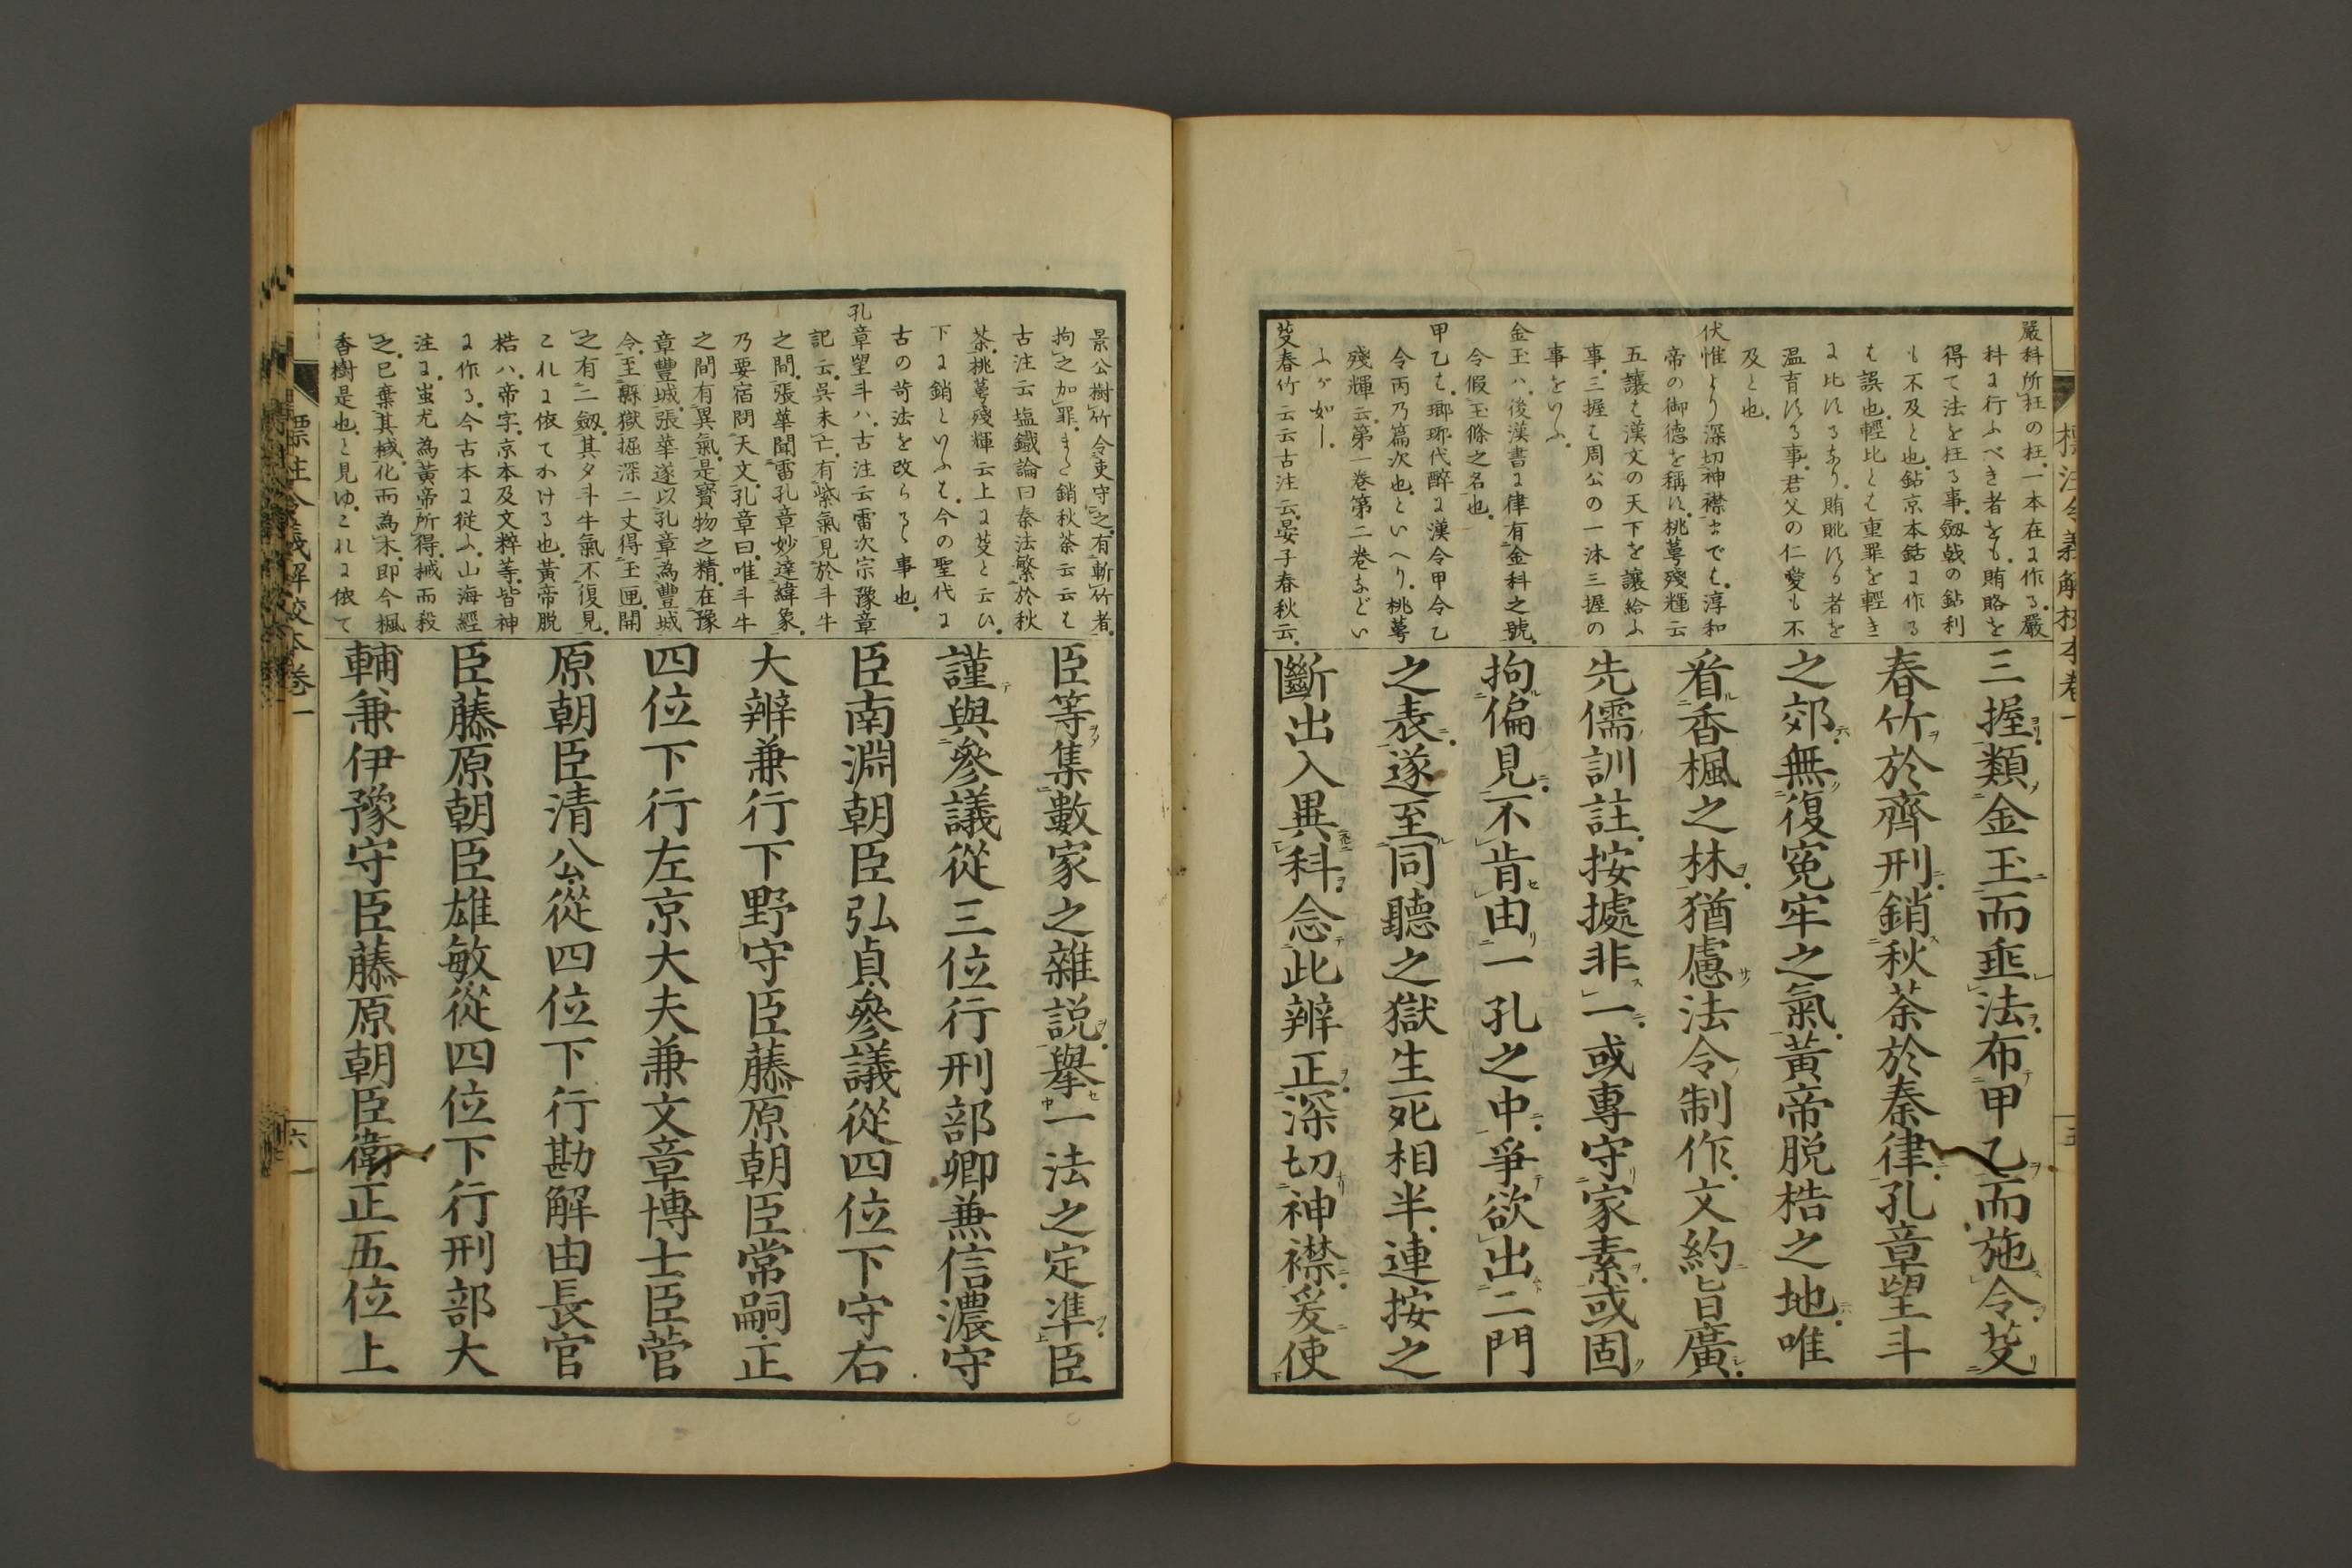 標注令義解校本卷一
五
嚴科所枉の枉一本在に作る嚴
科に行ふべき者をも賄賂を
得て法を枉る事劔戟の鈷利
も不及と也鈷京本鋯に作る
は誤也輕比とは重罪を輕き
に比するなり賄眺する者を
温育する事君父の仁愛も不
及と也
伏惟より深切神襟までは淳和
帝の御徳を稱す桃萼殘輝云
五讓は漢文の天下を讓給ふ
事三握は周公の一沐三握の
事をいふ
金玉ハ後漢書に律有金科之號
令假玉條之名也
甲乙は瑯琊代醉に漢令甲令乙
令丙乃篇次也といへり桃萼
殘輝云第一卷第二卷などい
ふが如し
芟春竹云云古注云晏子春秋云
三握類金玉而垂法布甲乙而施令芟
春竹於齊刑銷秋荼於秦律孔章望斗
之郊無復冤牢之氣黃帝脱梏之地唯
看香楓之林猶慮法令制作文約旨廣
先儒訓註按據非一或專守家素或固
拘偏見不肯由一孔之中爭欲出二門
之表遂至同聽之獄生死相半連按之
斷出入異科念此辨正深切神襟爰使
景公樹竹令吏守之有斬竹者
拘之加罪また銷秋荼云云は
古注云塩鐵論曰秦法繁於秋
荼桃萼殘輝云上に芟と云ひ
下に銷といふは今の聖代に
古の苛法を改らるゝ事也
孔章望斗ハ古注云雷次宗豫章
記云呉未亡有紫氣見於斗牛
之間張華聞雷孔章妙達緯象
乃要宿問天文孔章曰唯斗牛
之間有異氣是寳物之精在豫
章豐城張華遂以孔章為豐城
令至縣獄掘深二丈得玉匣開
之有二劔其夕斗牛氣不復見
これに依てかける也黃帝脱
梏ハ帝字京本及文粹等皆神
に作る今古本に從ふ山海經
注に蚩尤為黃帝所得械而殺
之已棄其械化而為木即今楓
香樹是也と見ゆこれに依て
臣等集數家之雜説擧一法之定準臣
謹與參議從三位行刑部卿兼信濃守
臣南淵朝臣弘貞參議從四位下守右
大辨兼行下野守臣藤原朝臣常嗣正
四位下行左京大夫兼文章博士臣菅
原朝臣清公從四位下行勘解由長官
臣藤原朝臣雄敏從四位下行刑部大
輔兼伊豫守臣藤原朝臣衛正五位上
標注令義解校本卷一
六